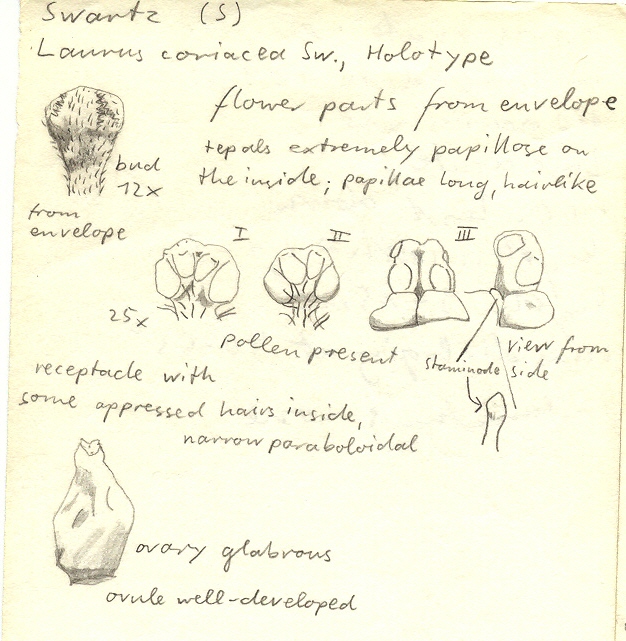 Swartz (S)
Laurus coriacea Sw., Holotype
flower parts from envelope
tepals extremely papillose on
the inside; papillae long, hairlike
bud
12x
from
envelope
I II III
25x
pollen present
staminode
view from
side
receptacle with
some appressed hairs inside,
narrow paraboloidal
ovary glabrous
ovule well-developed